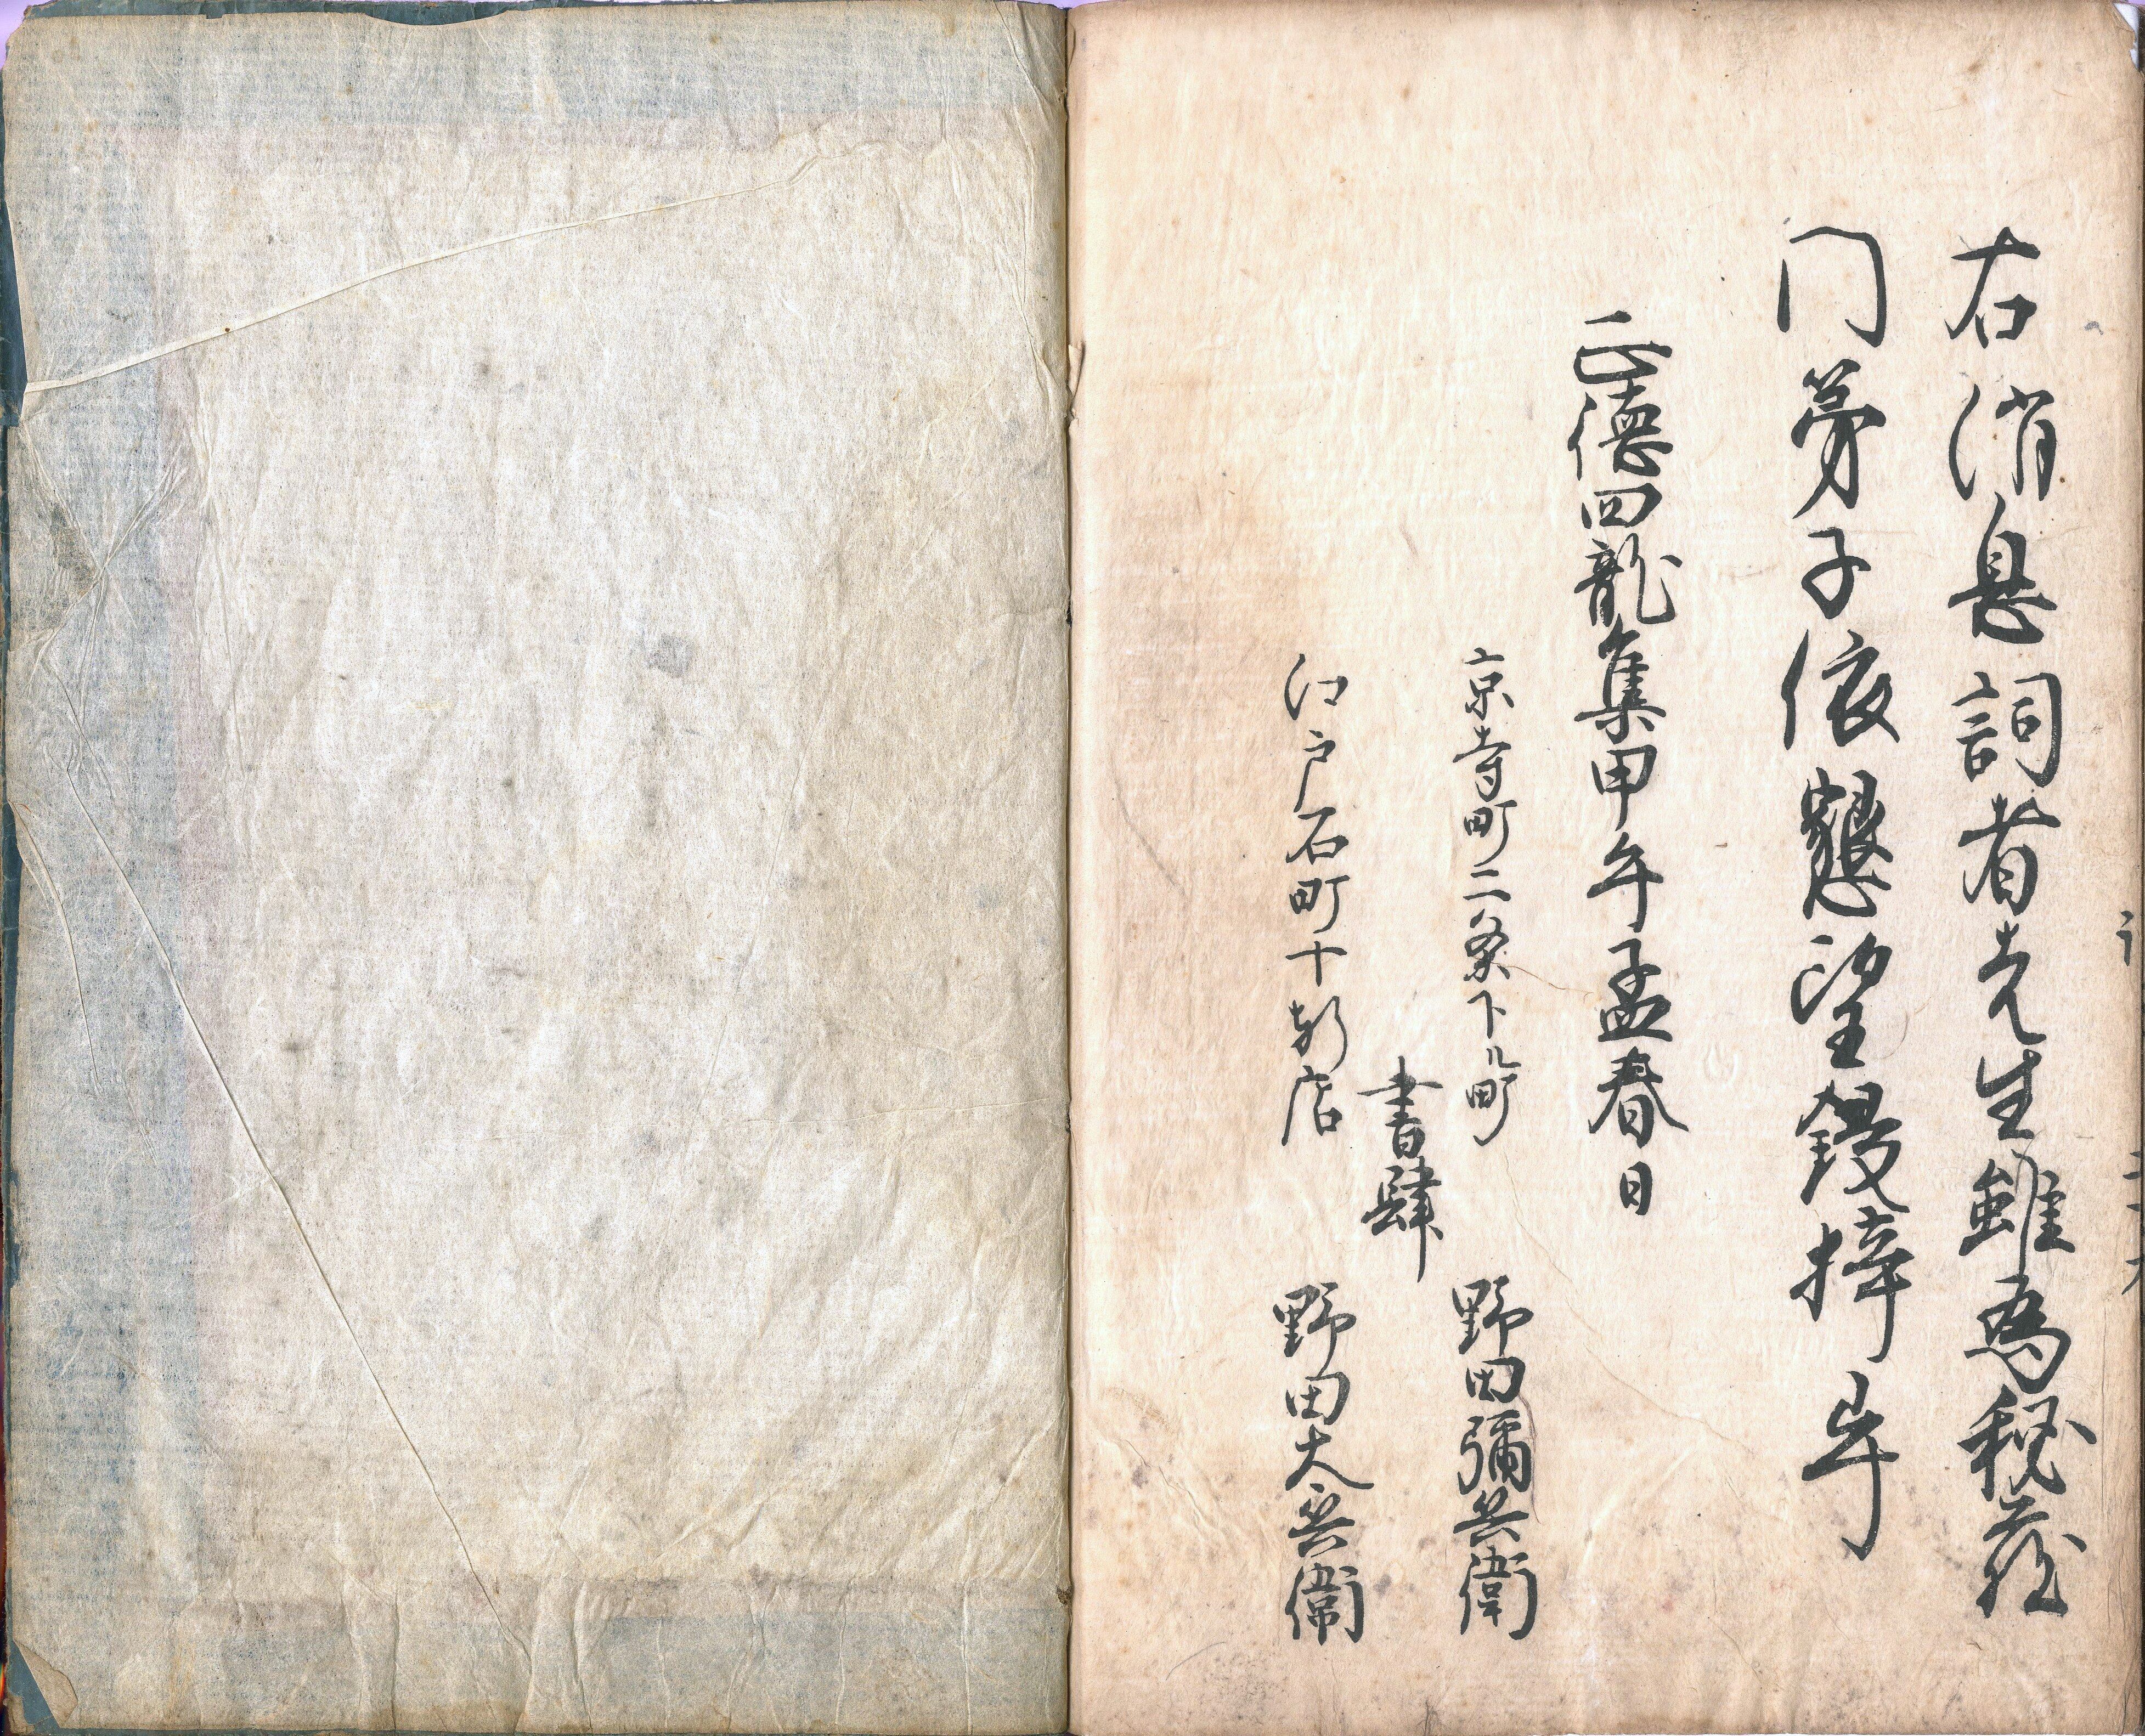 右消息詞者先生雖為秘蔵
門弟子依懇望鋟梓畢
正徳四龍集甲午孟春日
京寺町二条下ル町 野田彌兵衛
書肆
江戸石町十軒店 野田太兵衛